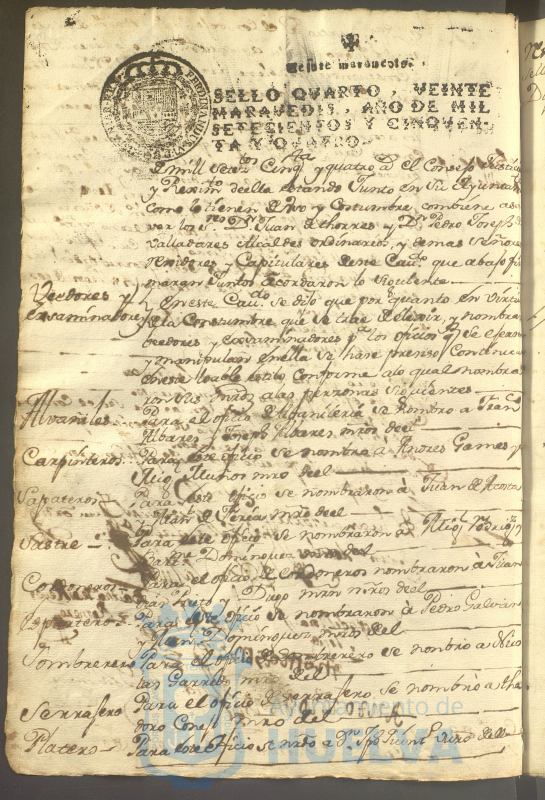 Veinte maravedis.
SELLO QVARTO, VEINTE
MARAVEDIS, AÑO DE MIL
SETECIENTOS Y CINQVEN-
TA Y QVATRO.
mill Setec.tos Cinq.ta y quatro el Consejo Justicia
y Reximto de ella estando Junto en su Ayuntam
como lo tienen de Uso y Costumbre combiene a sa
ver los s.res D.n Juan de thorres y D.n Pedro Joseph
Valladares Alcaldes ordinarios, y demas Señores
rexidores y Capitulares deste Cav.do que abajo fir
maran Juntos acordaron lo siguiente
Veedores y
exsaminadores
En este Cav.do se dijo que por quanto en virtu
de la Constumbre que se trae de elexir, y nombrar
beedores y exsaminadores p.a los oficios q.e se ejersen
y manipulan en ella se hase presiso
este loable estilo Conforme alo qual nombra
ron sus mrds alas personas siguientes
Alvañiles
Para el oficio de Albañileria se nombro a Fran.co
Albares y Joseph Albares mros del
Carpinteros
Para este oficio se nombro a Andres Games y
Muños mro del
Sapateros
Para este oficio se nombraron à Juan de Acosta
y Juan de Feria mro del
Sastre
Para este oficio se nombraron à Rodrig.z y
Dominguez mros del
Para el oficio de nombraron à Juan
Prieto y Diego niños del
Para este oficio se nombraron à Pedro Galvan
y Juan Dominguez mros del
Sombrerero
Para el oficio de Sombrerero se nonbro a Nico
las Garrido mro del
Serrasero
Para el oficio de Serrasero se nombrò a theo
doro mro del
Platero
Para este oficio se nrdo a D.n
Ayuntamiento de
HUELVA